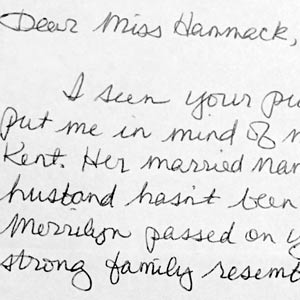 Dear Miss Hammack,
I seen your pu
put me in mind of m
Kent. Her married nam
husband hasn't been
Merrilyn passed on y
strong family resemb